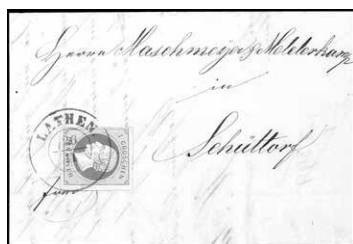 Herrn Maschmeyer & Melderkamp
in
Schüttorf
LATHEN
1 GROSCHEN
frei